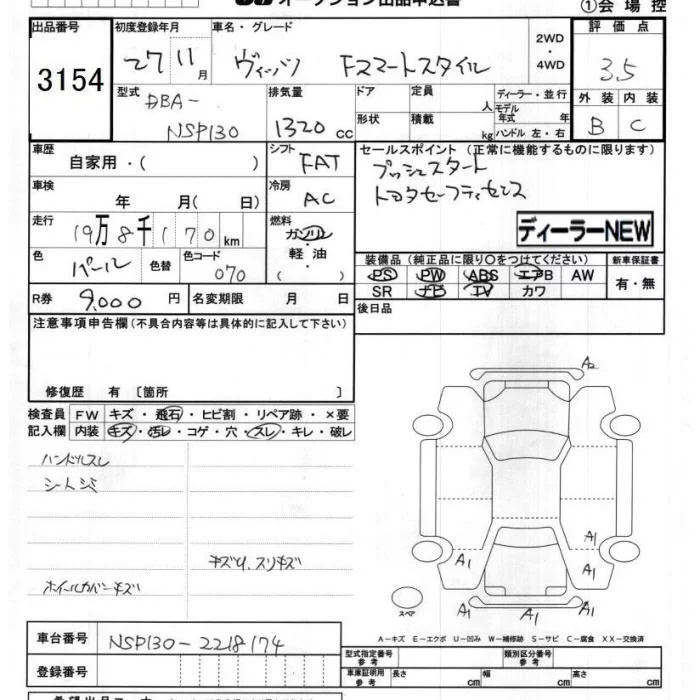 オークション出品申込書
①会 場 控
出品番号
3154
初度登録年月
27 11月
車名・グレード
ヴィッツ Fスマートスタイル
2WD
・
4WD
評 価 点
3.5
外 装 内 装
B C
型式
DBA-
NSP130
排気量
1320 cc
ドア
定員
人
ディーラー・並行
モデル
年式 年
形状
積載
kg
ハンドル 左・右
車歴
自家用・( )
シフト
FAT
セールスポイント (正常に機能するものに限ります)
プッシュスタート
トヨタセーフティセンス
ディーラーNEW
車検
年 月( 日)
冷房
AC
走行
19万8千170km
燃料
ガソリン
軽・油
( )
色
パール
色替
色コード
070
装備品 (純正品に限り○をつけてください)
新車保証書
PS PW ABS エアB AW
SR ナビ TV カワ
有・無
R券
9,000 円
名変期限 月 日
後日品
注意事項申告欄(不具合内容等は具体的に記入して下さい)
修復歴 有 〔箇所 〕
検査員
記入欄
FW キズ・飛石・ヒビ割・リペア跡・×要
内装 キズ・汚レ・コゲ・穴・スレ・キレ・破レ
ハンドルスレ
シートシミ
キズU、スリキズ
ホイールカバーキズ
A2
A1
A1
A1
A1
A1
A1
A1
スペア
A-キズ E-エクボ U-凹み W-補修跡 S-サビ C-腐食 XX-交換済
車台番号
NSP130-2218174
登録番号
型式指定番号
参 考
類別区分番号
参 考
車庫証明用
参 考
長さ cm
幅 cm
高さ cm